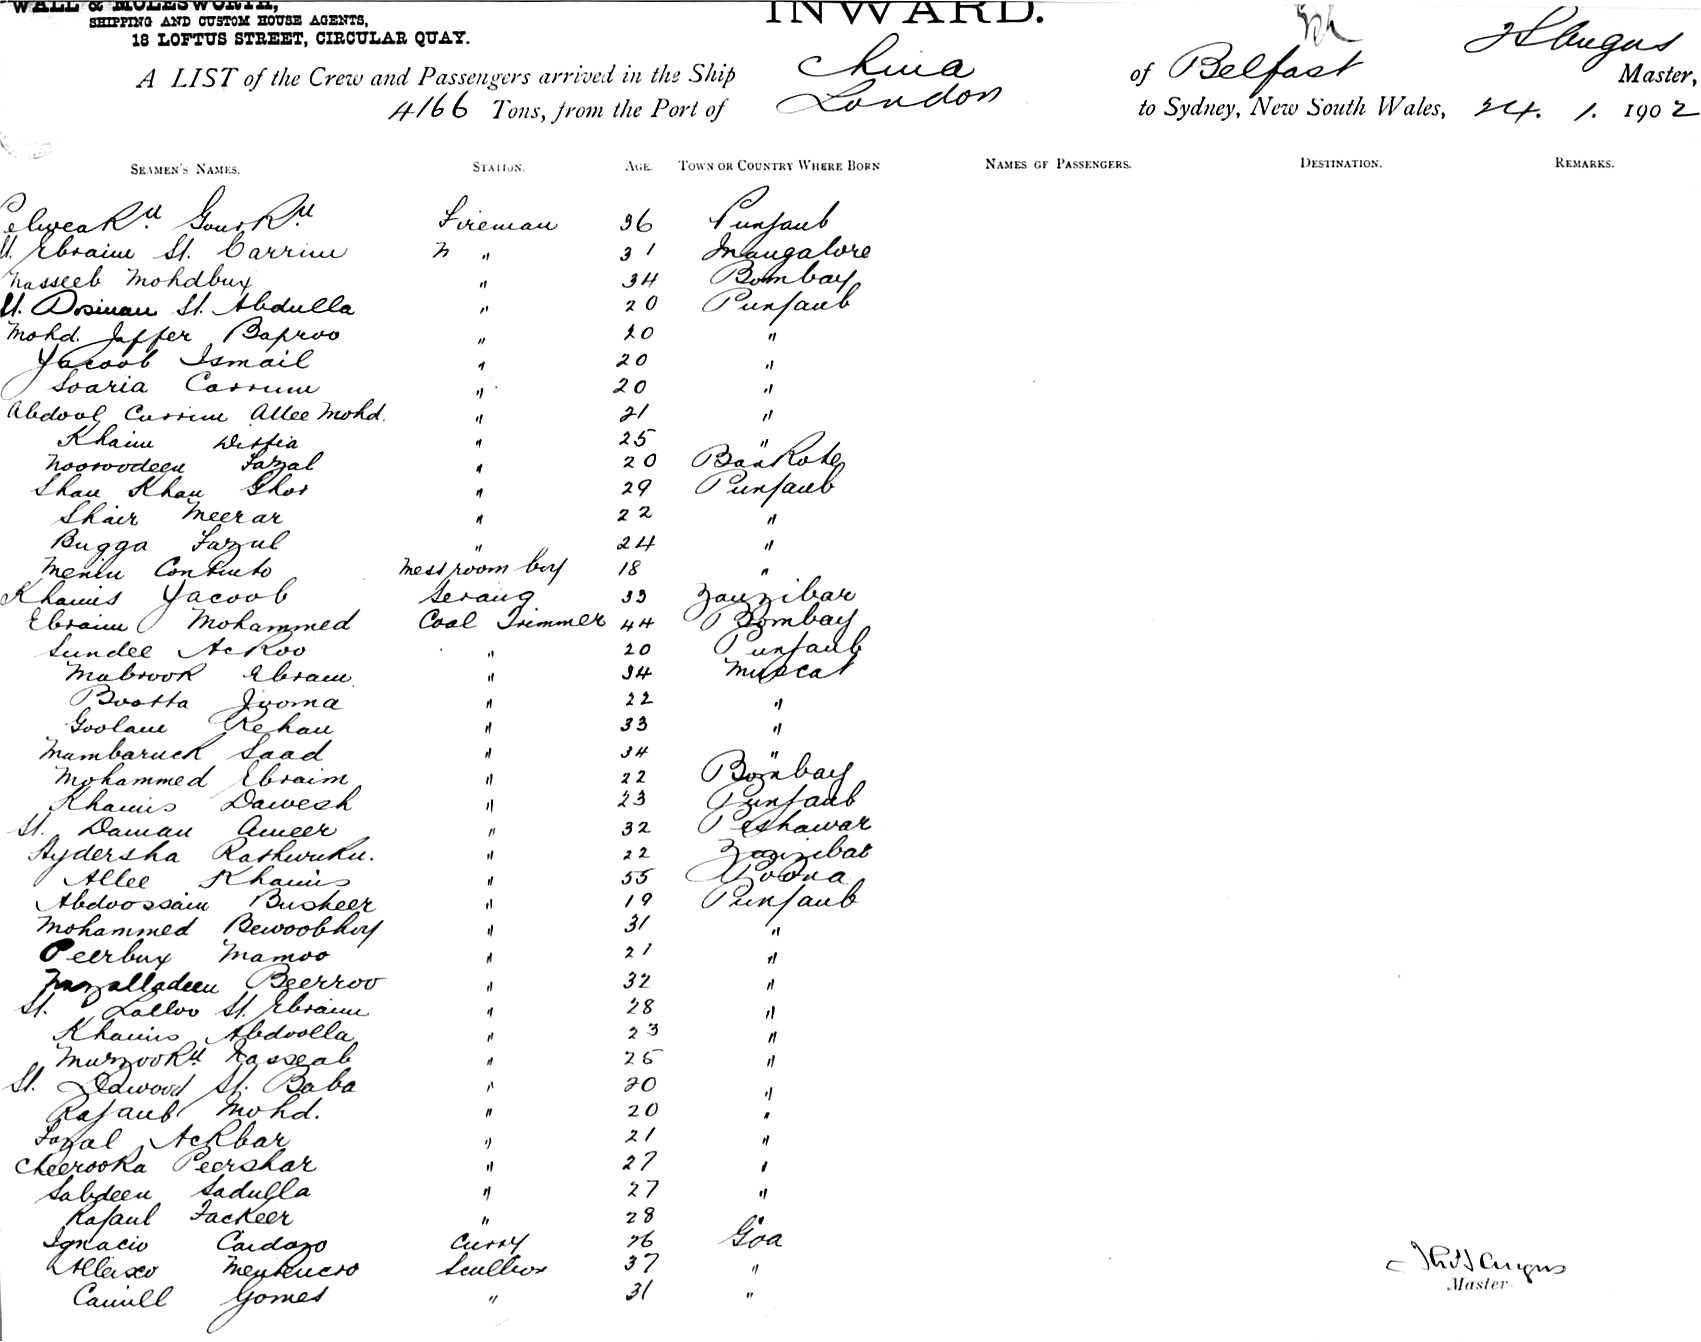 WALL & MOLESWORTH,
SHIPPING AND CUSTOM HOUSE AGENTS,
18 LOFTUS STREET, CIRCULAR QUAY.
INWARD.
A LIST of the Crew and Passengers arrived in the Ship China of Belfast Angus Master,
4166 Tons, from the Port of London to Sydney, New South Wales, 24. 1. 1902
SEAMEN'S NAMES. STATION. AGE. TOWN OR COUNTRY WHERE BORN NAMES OF PASSENGERS. DESTINATION. REMARKS.
Fireman 36 Punjaub
St. Ebraim St. Carrim " 31 Mangalore
Nasseeb Mohdbux " 34 Bombay
St. Dosman St. Abdulla " 20 Punjaub
Mohd. Jaffer Baproo " 20 "
Yacoob Ismail " 20 "
Soaria Carrum " 20 "
Abdool Currim Allee Mohd. " 21 "
Khaim " 25 "
Nooroodeen Fazal " 20 Bankote
Shau Khan Ghos " 29 Punjaub
Shair Meerar " 22 "
Bugga Fazul " 24 "
Menin Messroom boy 18 "
Khamis Yacoob Serang 33 Zanzibar
Ebraim Mohammed Coal Trimmer 44 Bombay
Sundee Ackoo " 20 Punjaub
Mabrook Ebram " 34 Muscat
Bootta Jooma " 22 "
Goolam Rehan " 33 "
Mambaruck Saad " 34 "
Mohammed Ebraim " 22 Bombay
Khamis Dawesh " 23 Punjaub
St. Daman Ameer " 32 Peshawar
Hydersha " 22 Zanzibar
Allee Khamis " 55 Poona
Abdoossain Busheer " 19 Punjaub
Mohammed Bewoobhoy " 31 "
Peerbux Mamoo " 21 "
Fuzalladeen Beerroo " 32 "
St. Lalloo St. Ebraim " 28 "
Khamis Abdoolla " 23 "
Murzook Nasseab " 25 "
St. Dawood St. Baba " 20 "
Rajaub Mohd. " 20 "
Fazal Ackbar " 21 "
Cheerooka Peershar " 27 "
Sabdeen Sadulla " 27 "
Rajaul Fackeer " 28 "
Ignacio Cardozo Curry 26 Goa
Alleixo Scullion 37 "
Camill Gomes " 31 "
Angus
Master.